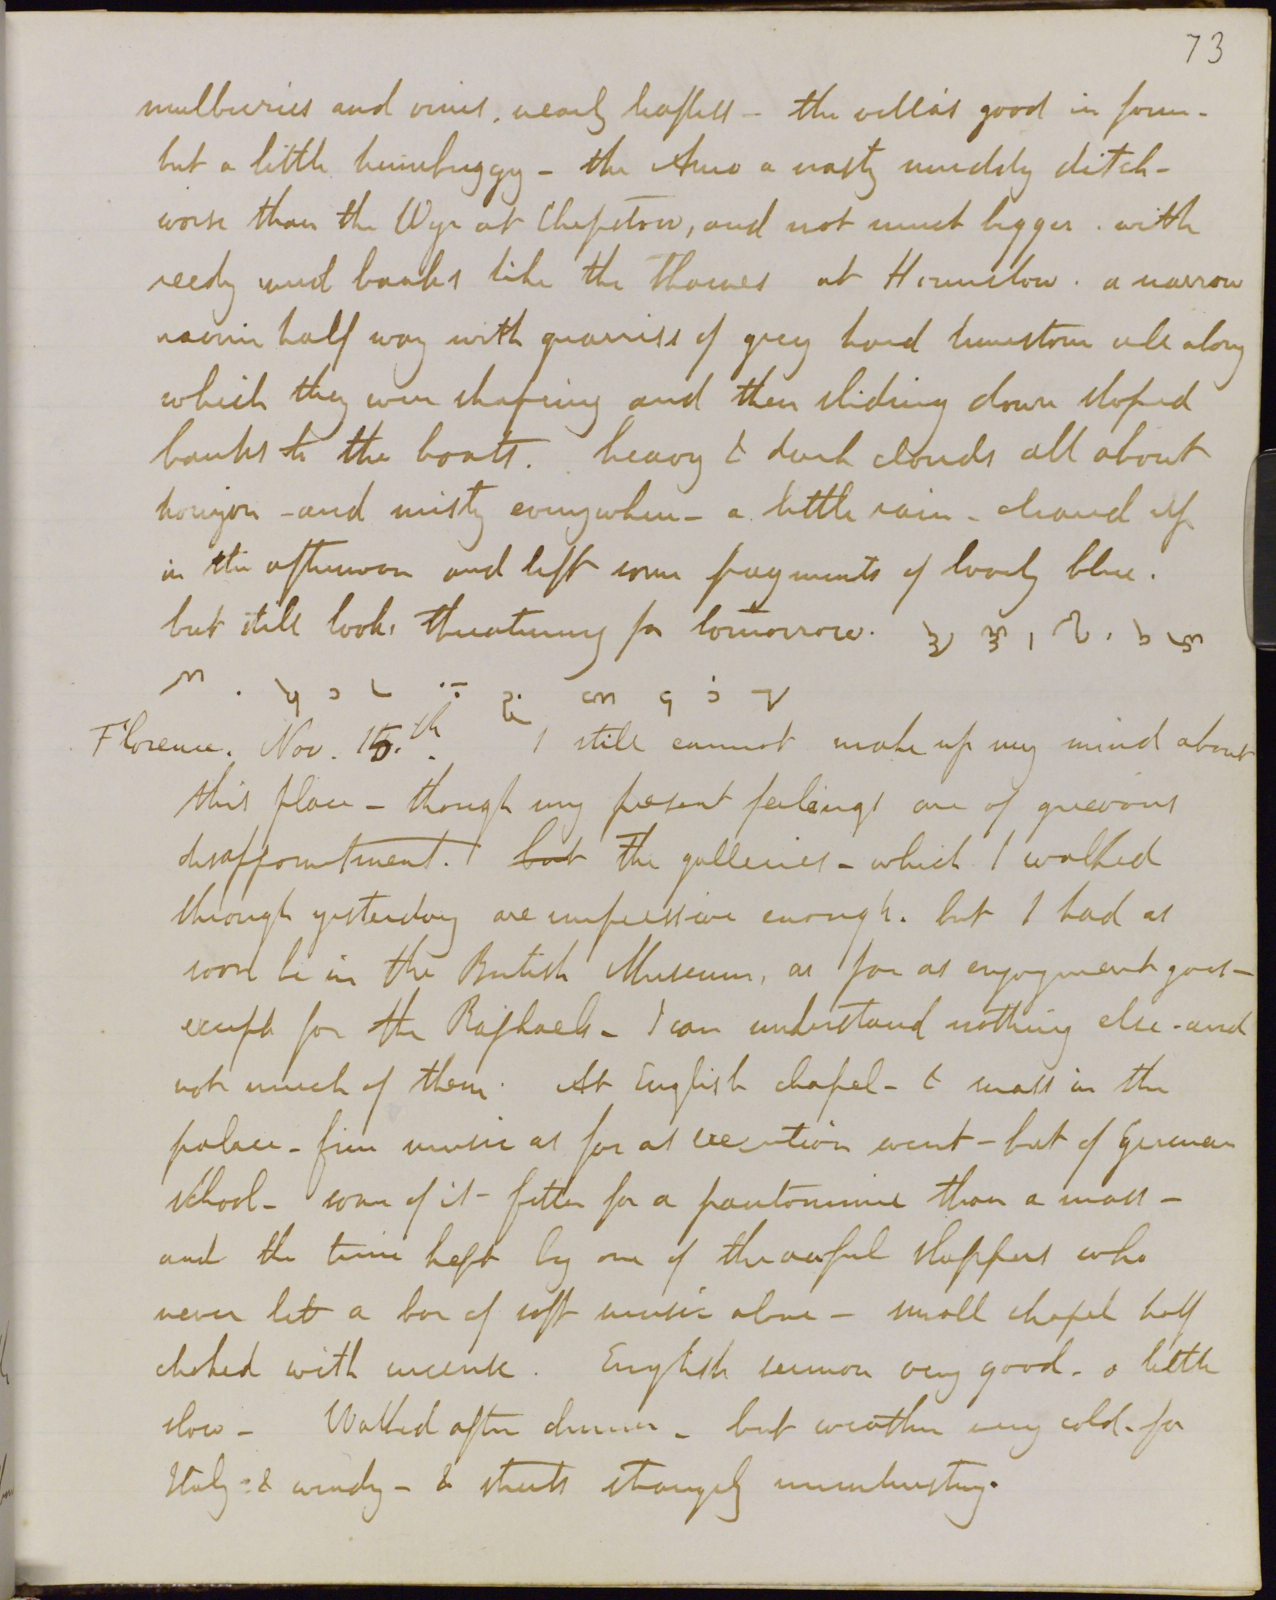 73
mulberries and vines, nearly leafless - the villas good in form -
but a little humbuggy - the Arno a nasty muddy ditch -
worse than the Wye at Chepstow, and not much bigger. with
reedy mud banks like the Thames at Hounslow. a narrow
ravine half way with quarries of grey hard limestone all along
which they were shaping and then sliding down sloped
banks to the boats. heavy & dark clouds all about
horizon - and misty everywhere - a little rain - cleared up
in the afternoon and left some fragments of lovely blue.
but still looks threatening for tomorrow.
Florence. Nov. 15.th I still cannot make up my mind about
this place - though my present feelings are of grievous
disappointment. but The galleries - which I walked
through yesterday are impressive enough. but I had as
soon be in the British Museum, as far as enjoyment goes -
except for the Raphaels - I can understand nothing else - and
not much of them. At English chapel - & mass in the
palace - fine music as far as execution went - but of German
school - some of it - fitter for a pantomime than a mass -
and the time kept by one of the awful slappers who
never let a bar of soft music alone - small chapel half
choked with incense. English sermon very good - a little
slow - Walked after dinner - but weather very cold - for
Italy - & windy - & streets strangely uninteresting.